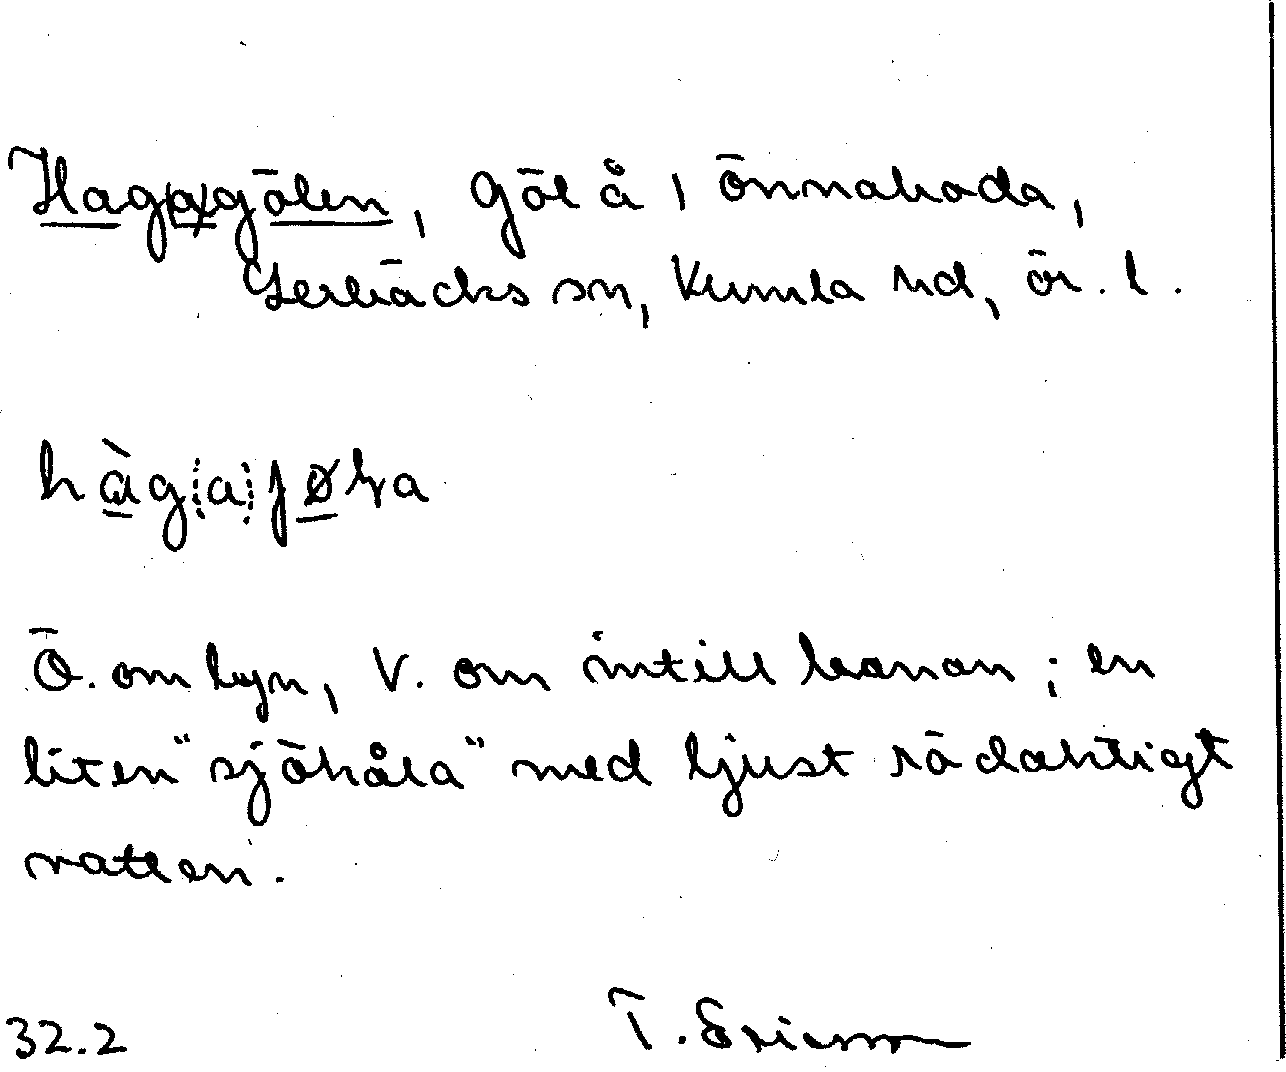 Hag(a)gölen, göl å i Önnaboda,
Lerbäcks sn, Kumla hd, Ör. l.
hàg(a)jøɫa
Ö. om byn, V. om intill banan; en
liten "sjöhåla" med ljust rödaktigt
vatten.
32.2 T. Ericsson